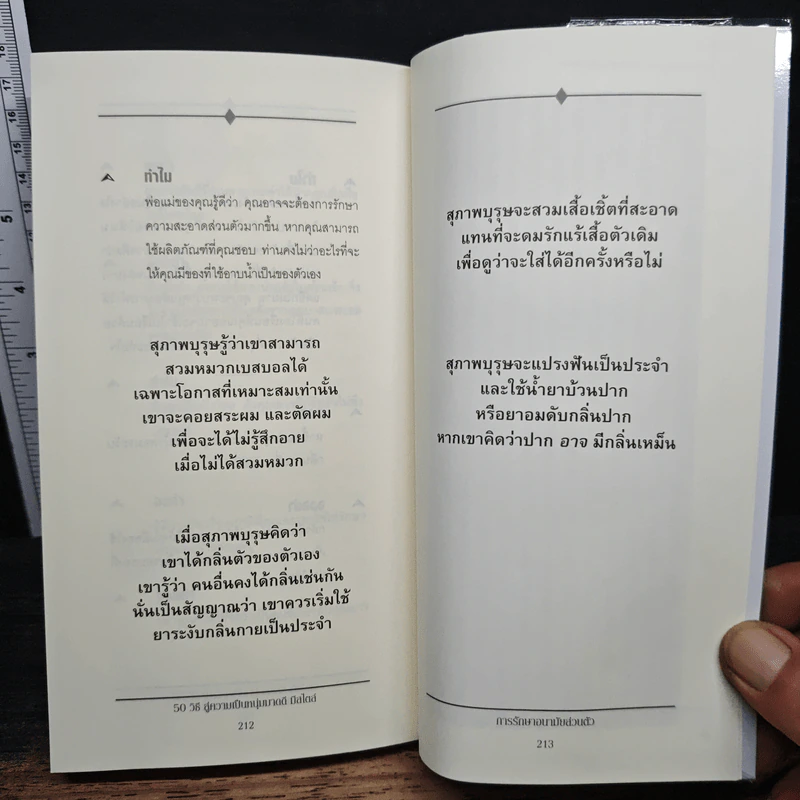 ทำไม
พ่อแม่ของคุณรู้ดีว่า คุณอาจจะต้องการรักษา
ความสะอาดส่วนตัวมากขึ้น หากคุณสามารถ
ใช้ผลิตภัณฑ์ที่คุณชอบ ท่านคงไม่ว่าอะไรที่จะ
ให้คุณมีของที่ใช้อาบน้ำเป็นของตัวเอง
สุภาพบุรุษรู้ว่าเขาสามารถ
สวมหมวกเบสบอลได้
เฉพาะโอกาสที่เหมาะสมเท่านั้น
เขาจะคอยสระผม และตัดผม
เพื่อจะได้ไม่รู้สึกอาย
เมื่อไม่ได้สวมหมวก
เมื่อสุภาพบุรุษคิดว่า
เขาได้กลิ่นตัวของตัวเอง
เขารู้ว่า คนอื่นคงได้กลิ่นเช่นกัน
นั่นเป็นสัญญาณว่า เขาควรเริ่มใช้
ยาระงับกลิ่นกายเป็นประจำ
50 วิธี สู่ความเป็นหนุ่มมาดดี มีสไตล์
212
สุภาพบุรุษจะสวมเสื้อเชิ้ตที่สะอาด
แทนที่จะดมรักแร้เสื้อตัวเดิม
เพื่อดูว่าจะใส่ได้อีกครั้งหรือไม่
สุภาพบุรุษจะแปรงฟันเป็นประจำ
และใช้น้ำยาบ้วนปาก
หรือยาอมดับกลิ่นปาก
หากเขาคิดว่าปาก อาจ มีกลิ่นเหม็น
การรักษาอนามัยส่วนตัว
213
18
17
16
15
14
13
12
5
4
3